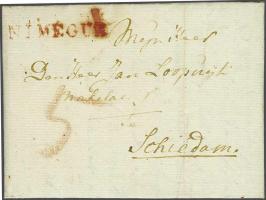 NIMEGUE
Mijn Heer
Den Heer Jan Loopuijt
Makelaar
te
Schiedam.
5